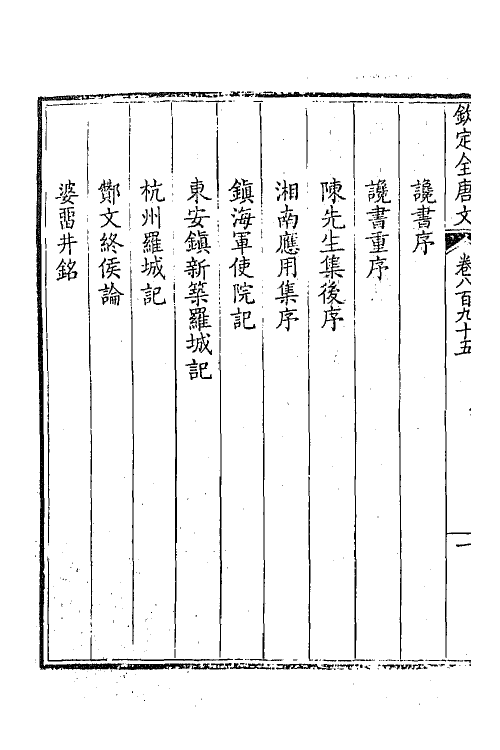 欽定全唐文 卷八百九十五 一
讒書序
讒書重序
陳先生集後序
湘南應用集序
鎮海軍使院記
東安鎮新築羅城記
杭州羅城記
酇文終侯論
婆㽞井銘